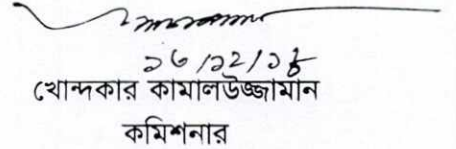 ১৬/১২/১৮
খোন্দকার কামালউজ্জামান
কমিশনার